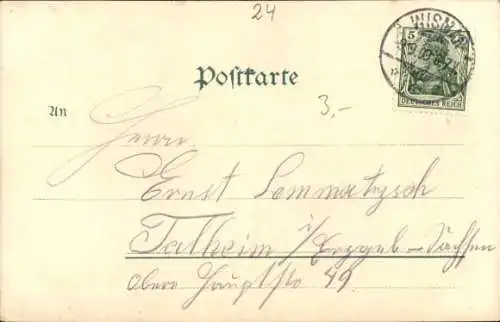 24
WISMAR
5
DEUTSCHES REICH
Postkarte
3,-
An
Herrn
Ernst Lommatzsch
Talheim i/Erzgeb-Sachsen
obere Hauptstr 49